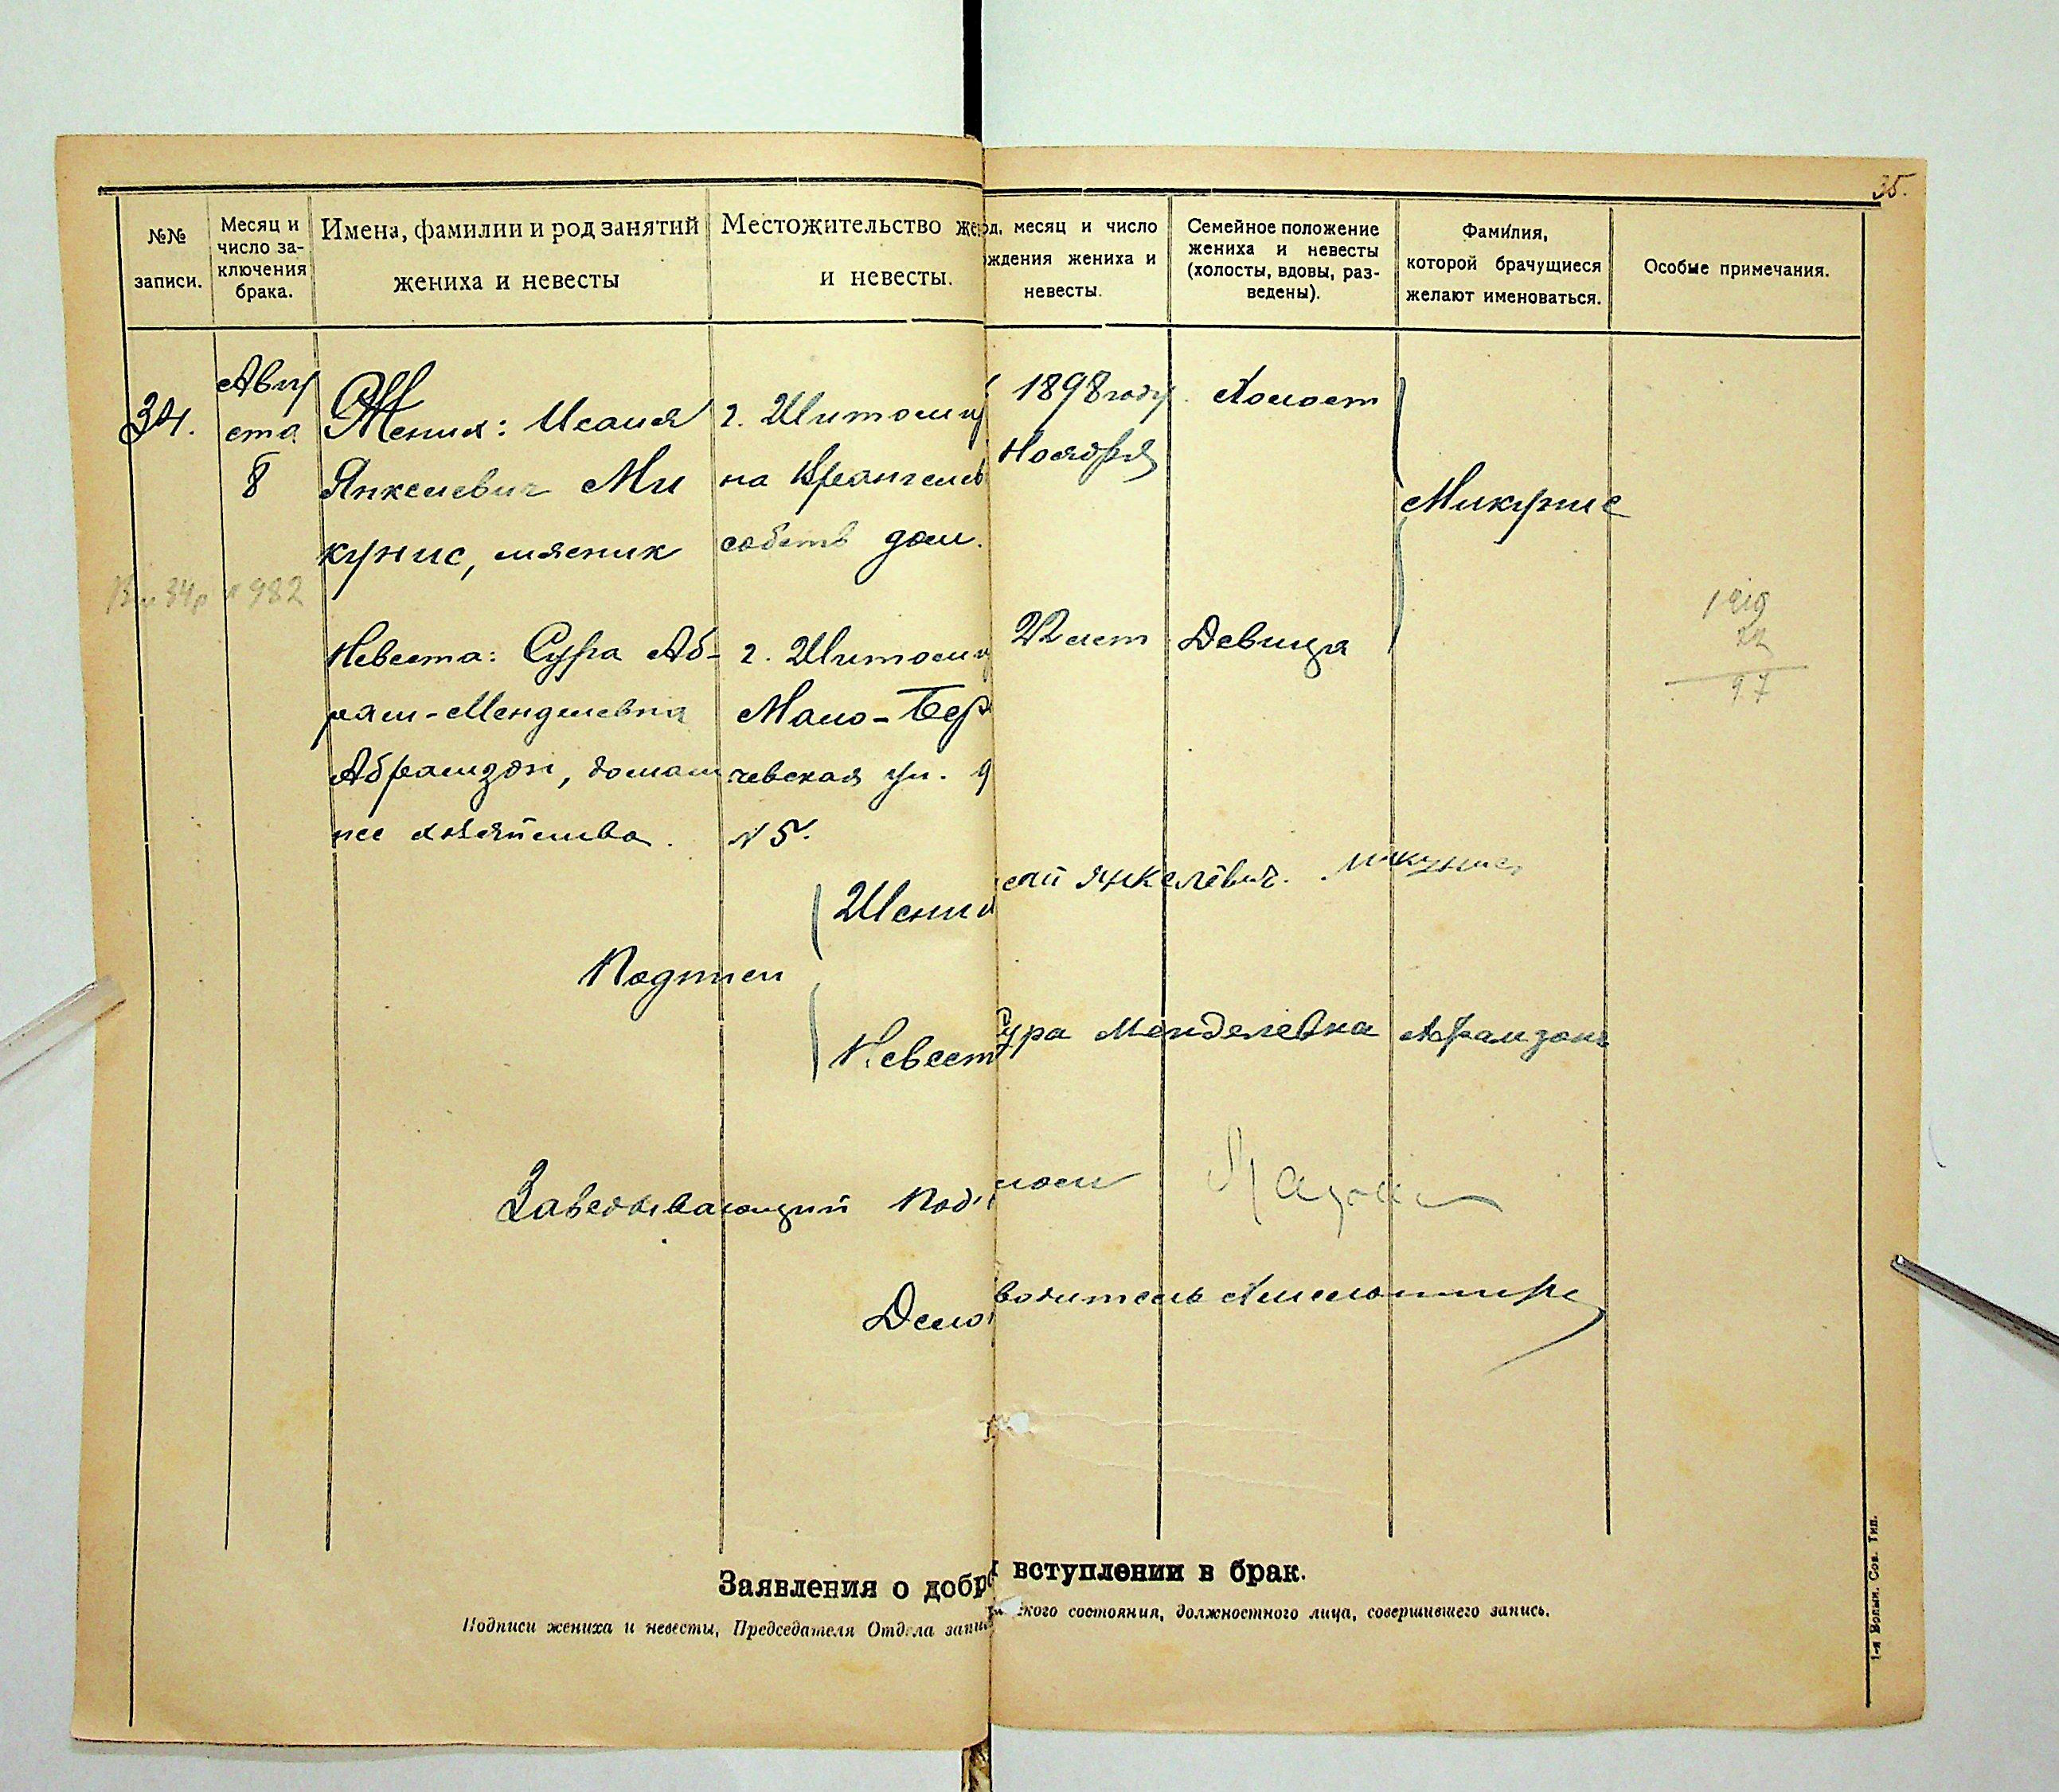 35.
№№ записи.
Месяц и число заключения брака.
Имена, фамилии и род занятий жениха и невесты
Местожительство жен
и невесты.
од, месяц и число
ождения жениха и
невесты.
Семейное положение
жениха и невесты
(холосты, вдовы, раз-
ведены).
Фамилия,
которой брачущиеся
желают именоваться.
Особые примечания.
34.
Авгу
ста
8
Жених: Исаия
Янкелевич Ми
кунис, мясник
г. Житомир
на Врангелев
собств дом.
1898 году
Ноября
Холост
Микунис
982
Невеста: Сура Аб-
рам-Менделевна
Абрамзон, домаш
нее хозяйство.
г. Житомир
Мало-Бер
чевская ул. д
№ 5.
22 лет
Девица
1919
22
97
Жених
сай Янкелевич. Микунис
Подписи
Невест
Сура Менделевна Абрамзон
Заведывающий Под
Дело
водитель
Заявления о добро
вступлении в брак.
Подписи жениха и невесты, Председателя Отдела запис
ского состояния, должностного лица, совершившего запись.
1-я Волын. Сов. Тип.